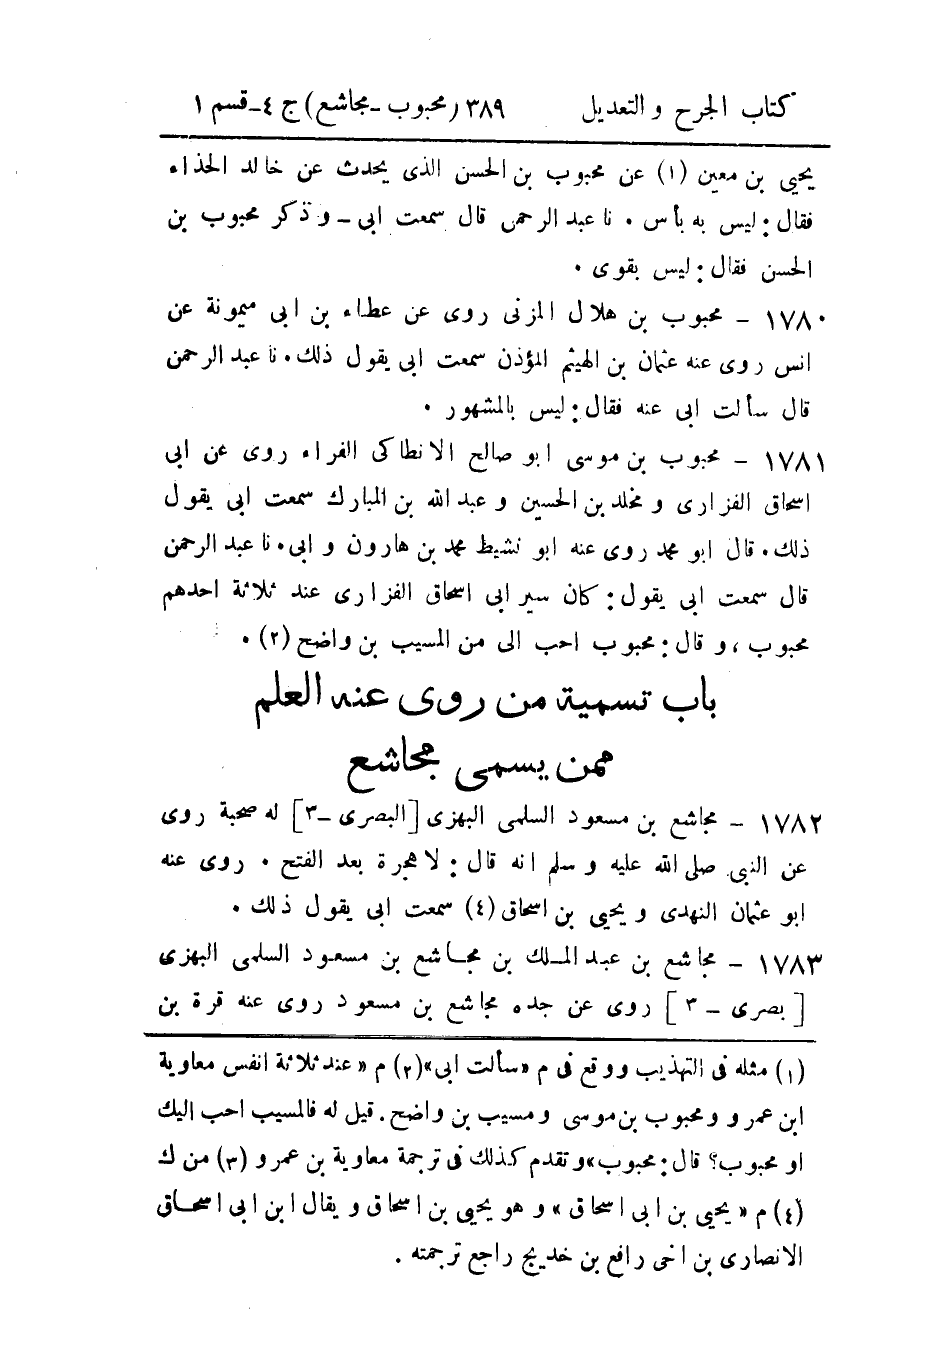 كتاب الجرح و التعديل ٣٨٩ (محبوب - مجاشع) ج ٤ - قسم ١
يحيى بن معين (١) عن محبوب بن الحسن الذى يحدث عن خالد الحذاء
فقال : ليس به بأس . نا عبد الرحمن قال سمعت ابى - و ذكر محبوب بن
الحسن فقال : ليس بقوى .
١٧٨٠ - محبوب بن هلال المزنى روى عن عطاء بن ابى ميمونة عن
انس روى عنه عثمان بن الهيثم المؤذن سمعت ابى يقول ذلك . نا عبد الرحمن
قال سألت ابى عنه فقال : ليس بالمشهور .
١٧٨١ - محبوب بن موسى ابو صالح الانطاكى الفراء روى عن ابى
اسحاق الفزارى و مخلد بن الحسين و عبد الله بن المبارك سمعت ابى يقول
ذلك . قال ابو محمد روى عنه ابو نشيط محمد بن هارون و ابى . نا عبد الرحمن
قال سمعت ابى يقول : كان سير ابى اسحاق الفزارى عند ثلاثة احدهم
محبوب ، و قال : محبوب احب الى من المسيب بن واضح (٢) .
باب تسمية من روى عنه العلم
ممن يسمى مجاشع
١٧٨٢ - مجاشع بن مسعود السلمى البهزى [البصرى - ٣] له صحبة روى
عن النبى صلى الله عليه و سلم انه قال : لا هجرة بعد الفتح . روى عنه
ابو عثمان النهدى و يحيى بن اسحاق (٤) سمعت ابى يقول ذلك .
١٧٨٣ - مجاشع بن عبد الملك بن مجاشع بن مسعود السلمى البهزى
[بصرى - ٣] روى عن جده مجاشع بن مسعود روى عنه قرة بن
(١) مثله فى التهذيب ووقع فى م «سألت ابى» (٢) م « عند ثلاثة انفس معاوية
ابن عمرو ومحبوب بن موسى ومسيب بن واضح . قيل له فالمسيب احب اليك
او محبوب ؟ قال : محبوب » وتقدم كذلك فى ترجمة معاوية بن عمرو (٣) من ك
(٤) م « يحيى بن ابى اسحاق » و هو يحيى بن اسحاق و يقال ابن ابى اسحاق
الانصارى بن اخى رافع بن خديج راجع ترجمته .